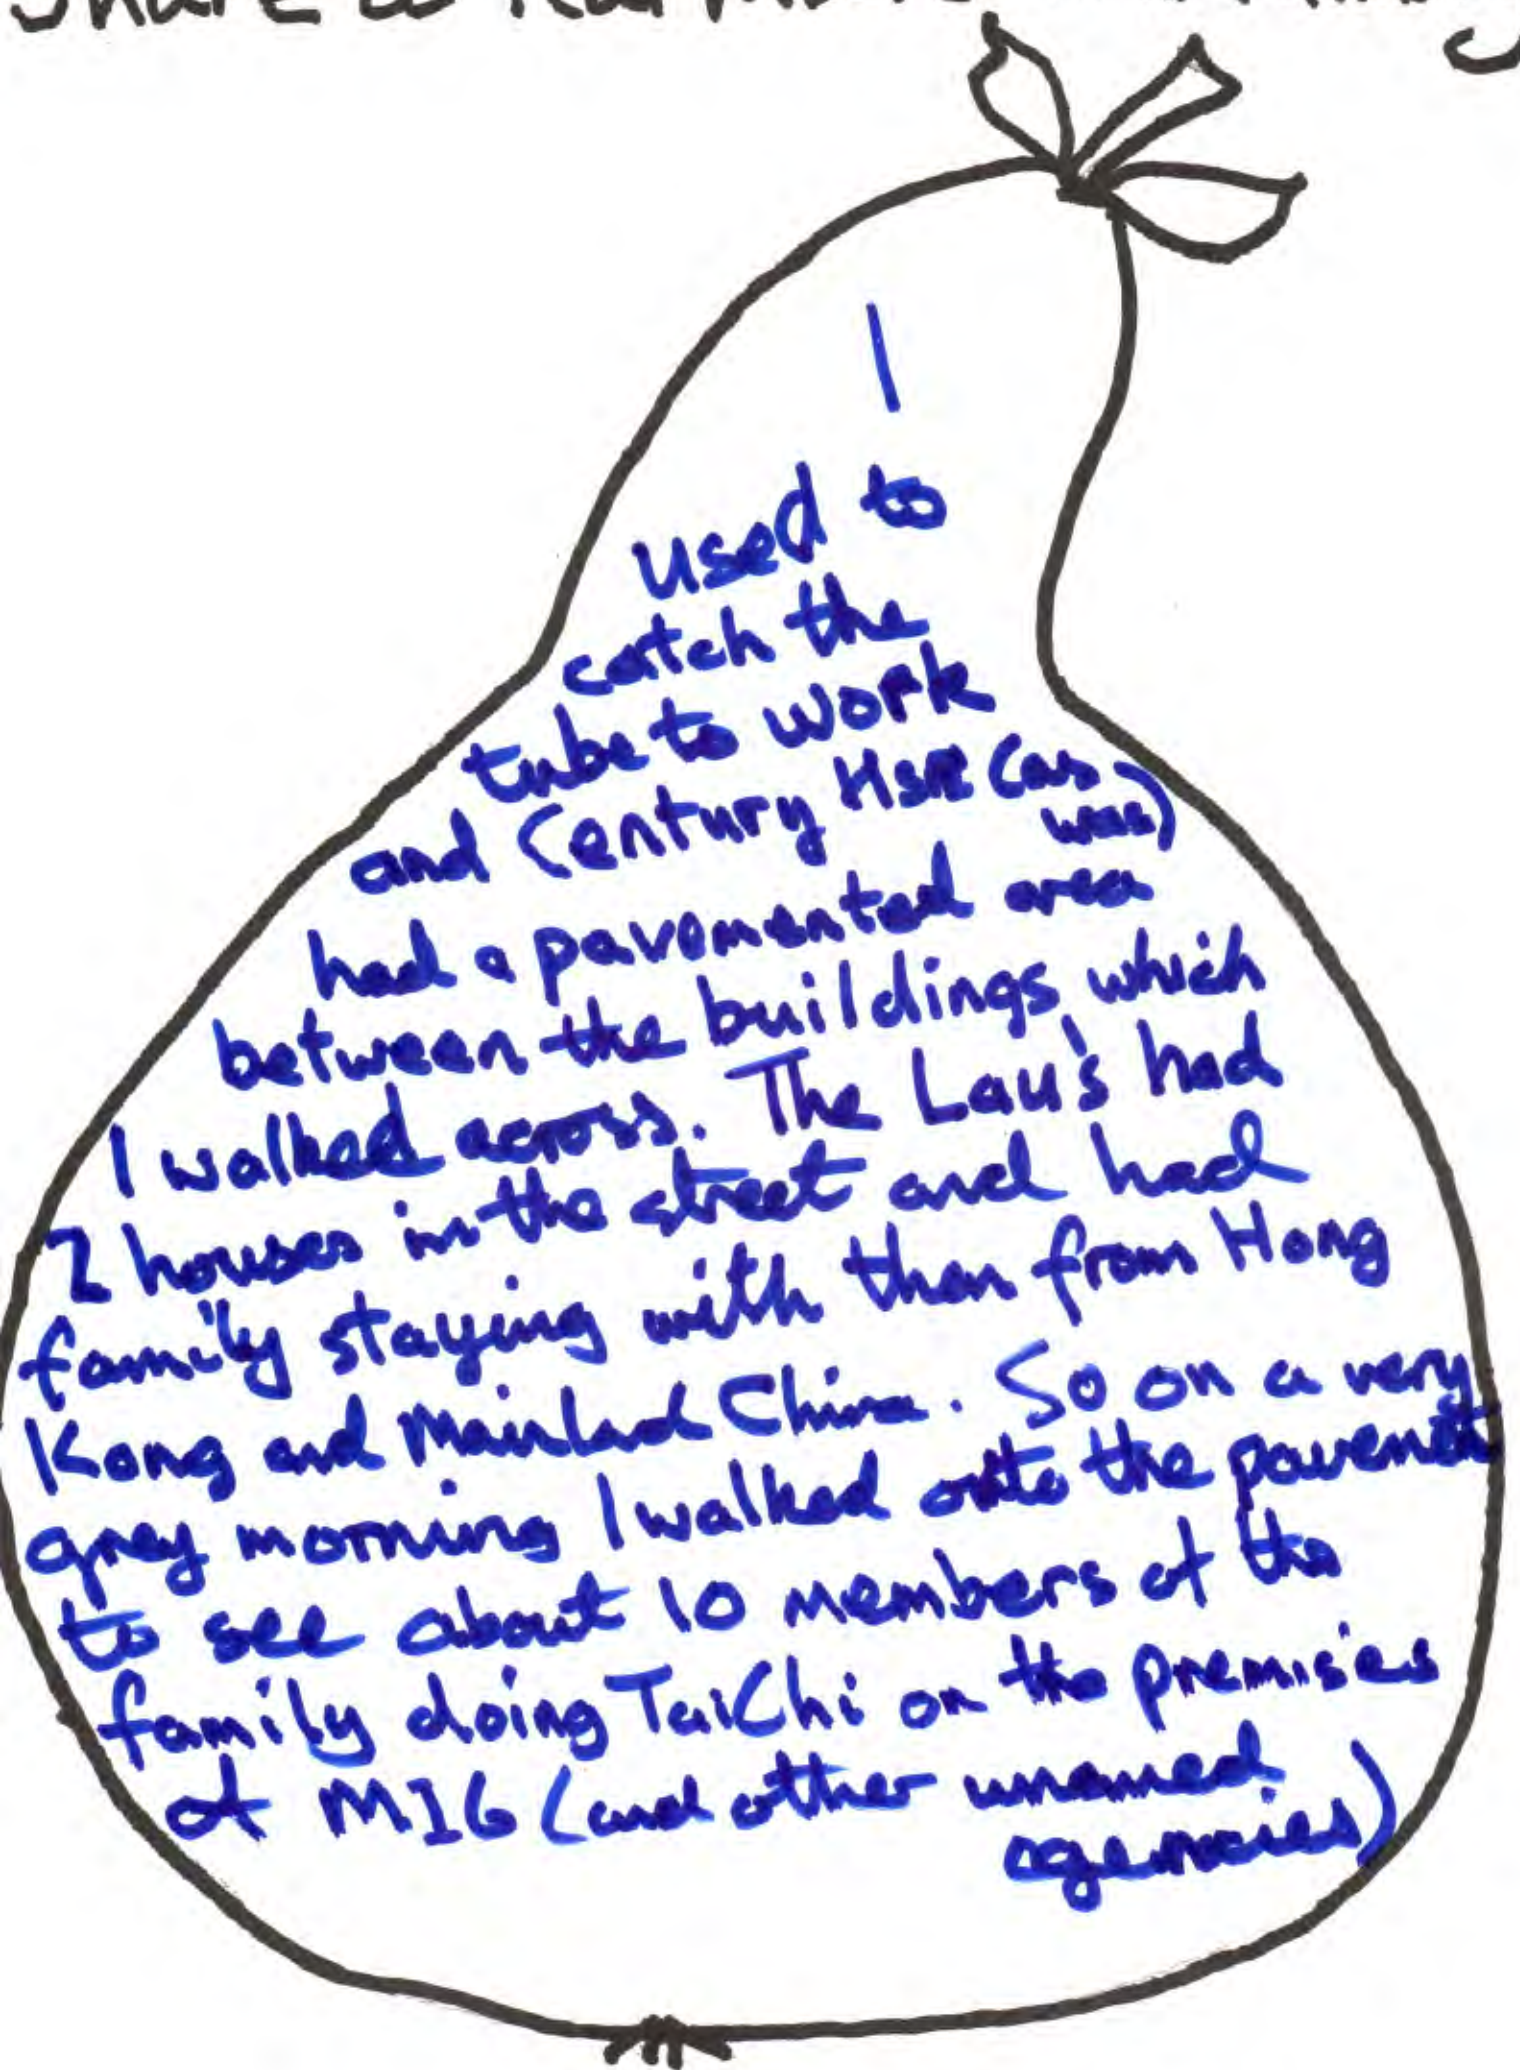 share a
I
used to
catch the
tube to work
and Century HSE (as
was)
had a pavemented area
between the buildings, which
I walked across. The Lau's had
2 houses in the street and had
family staying with them from Hong
Kong and Mainlad China. So on a very
grey morning I walked onto the pavement
to see about 10 members of the
family doing TaiChi on the premises
of MI6 (and other unamed
agencies)